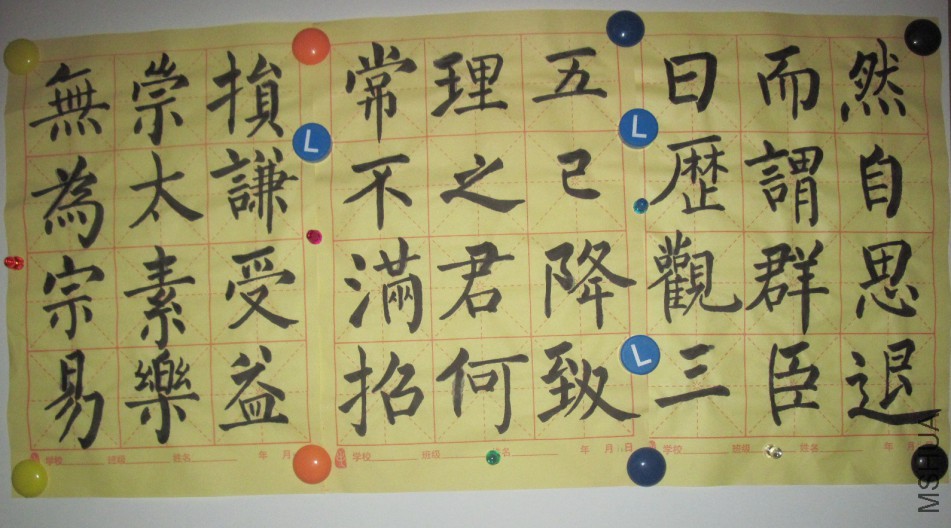 然自思退
而謂群臣
曰歷觀三
五已降致
理之君何
常不滿招
損謙受益
崇太素樂
無為宗易
学校 班级 姓名 年 月
学校 班级 名 年 月 日
学校 班级 姓名 年 月
L
L
L